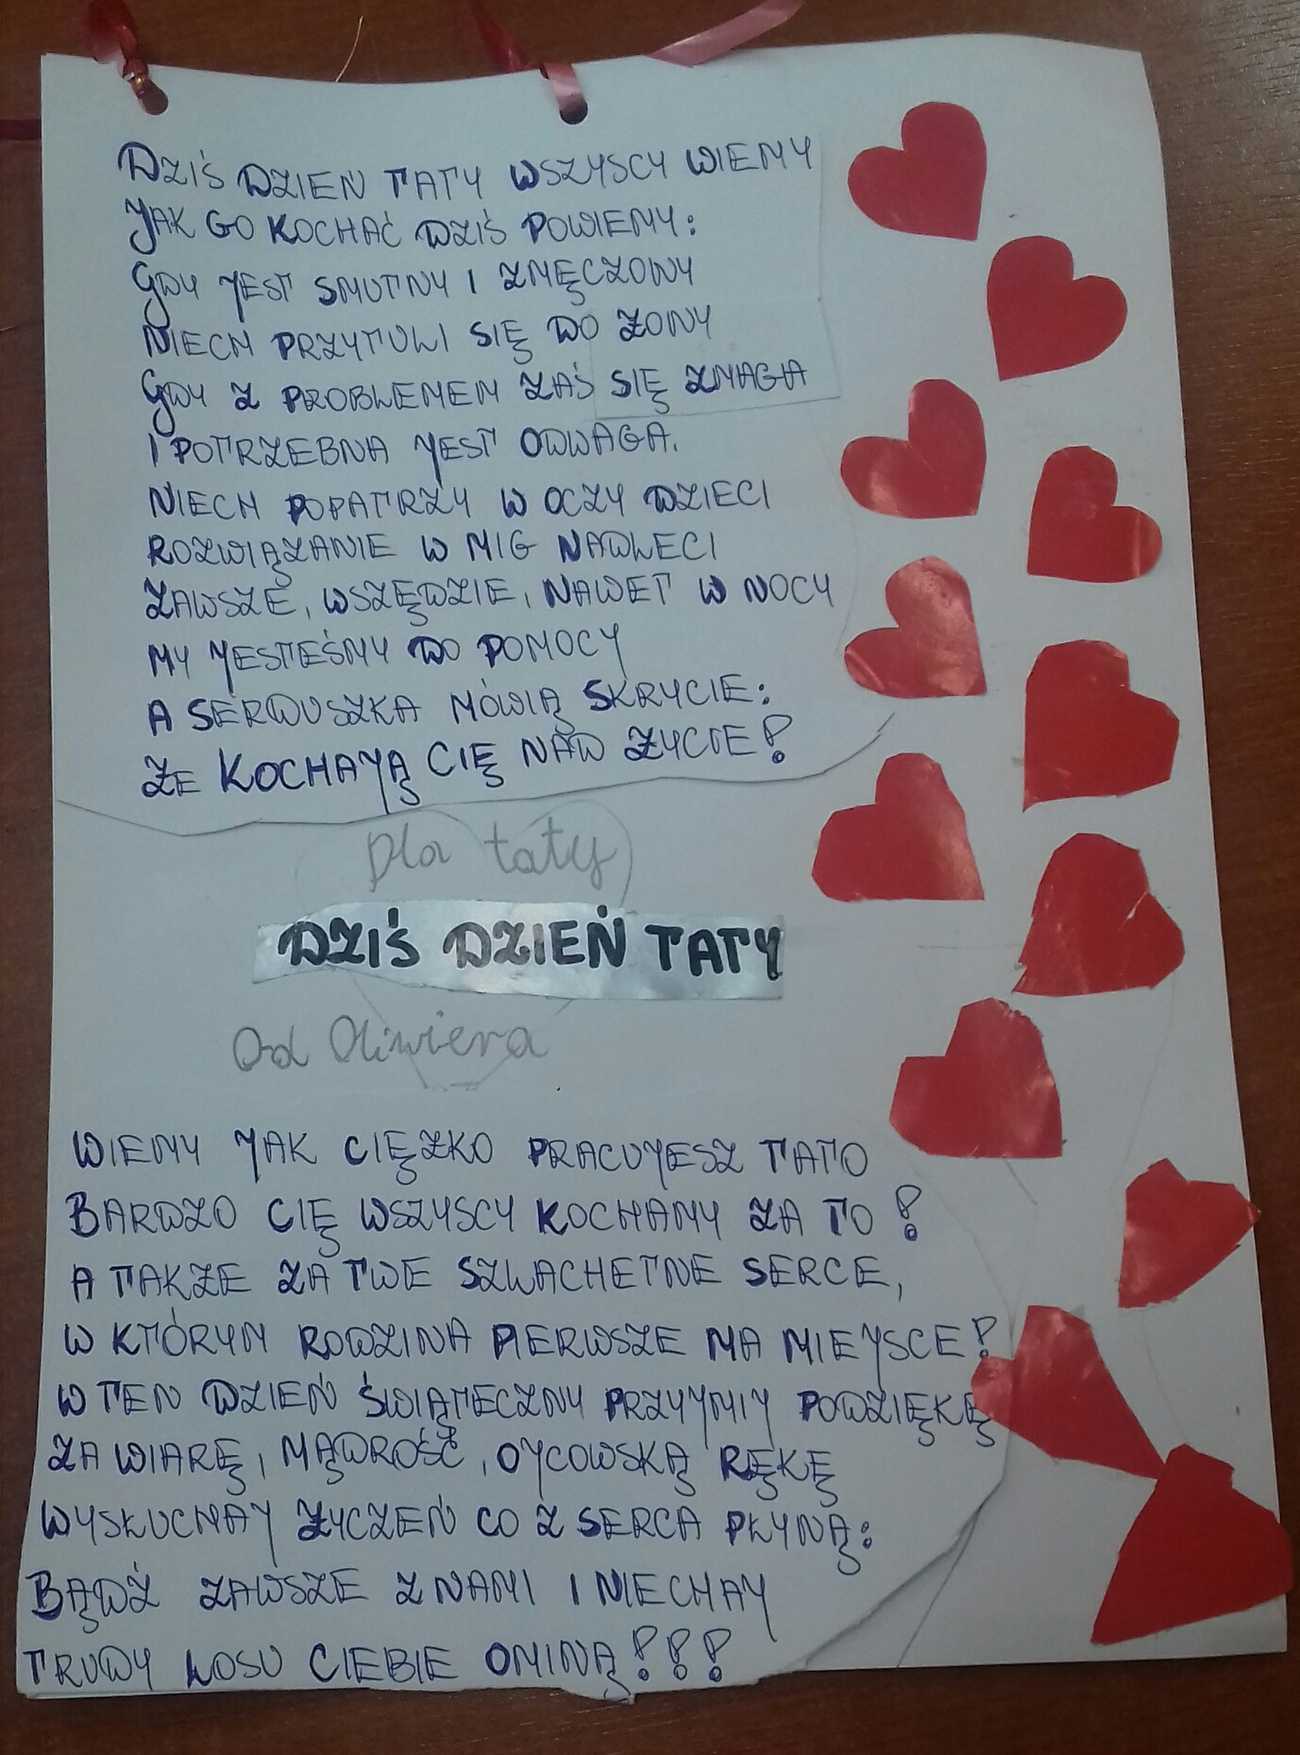 DZIŚ DZIEŃ TATY WSZYSCY WIEMY
JAK GO KOCHAĆ DZIŚ POWIEMY:
GDY JEST SMUTNY I ZMĘCZONY
NIECH PRZYTULI SIĘ DO ŻONY
GDY Z PROBLEMEM ZAŚ SIĘ ZMAGA
I POTRZEBNA JEST ODWAGA.
NIECH POPATRZY W OCZY DZIECI
ROZWIĄZANIE W MIG NADLECI
ZAWSZE, WSZĘDZIE, NAWET W NOCY
MY JESTEŚMY DO POMOCY
A SERDUSZKA MÓWIĄ SKRYCIE:
ŻE KOCHAJĄ CIĘ NAD ŻYCIE!
Dla taty
DZIŚ DZIEŃ TATY
Od Oliwiera
WIEMY JAK CIĘŻKO PRACUJESZ TATO
BARDZO CIĘ WSZYSCY KOCHAMY ZA TO!
A TAKŻE ZA TWE SZLACHETNE SERCE,
W KTÓRYM RODZINA PIERWSZE MA MIEJSCE!
W TEN DZIEŃ ŚWIĄTECZNY PRZYJMIJ PODZIĘKĘ
ZA WIARĘ, MĄDROŚĆ, OJCOWSKĄ RĘKĘ
WYSŁUCHAJ ŻYCZEŃ CO Z SERCA PŁYNĄ:
BĄDŹ ZAWSZE Z NAMI I NIECHAJ
TRUDY LOSU CIEBIE OMINĄ!!!